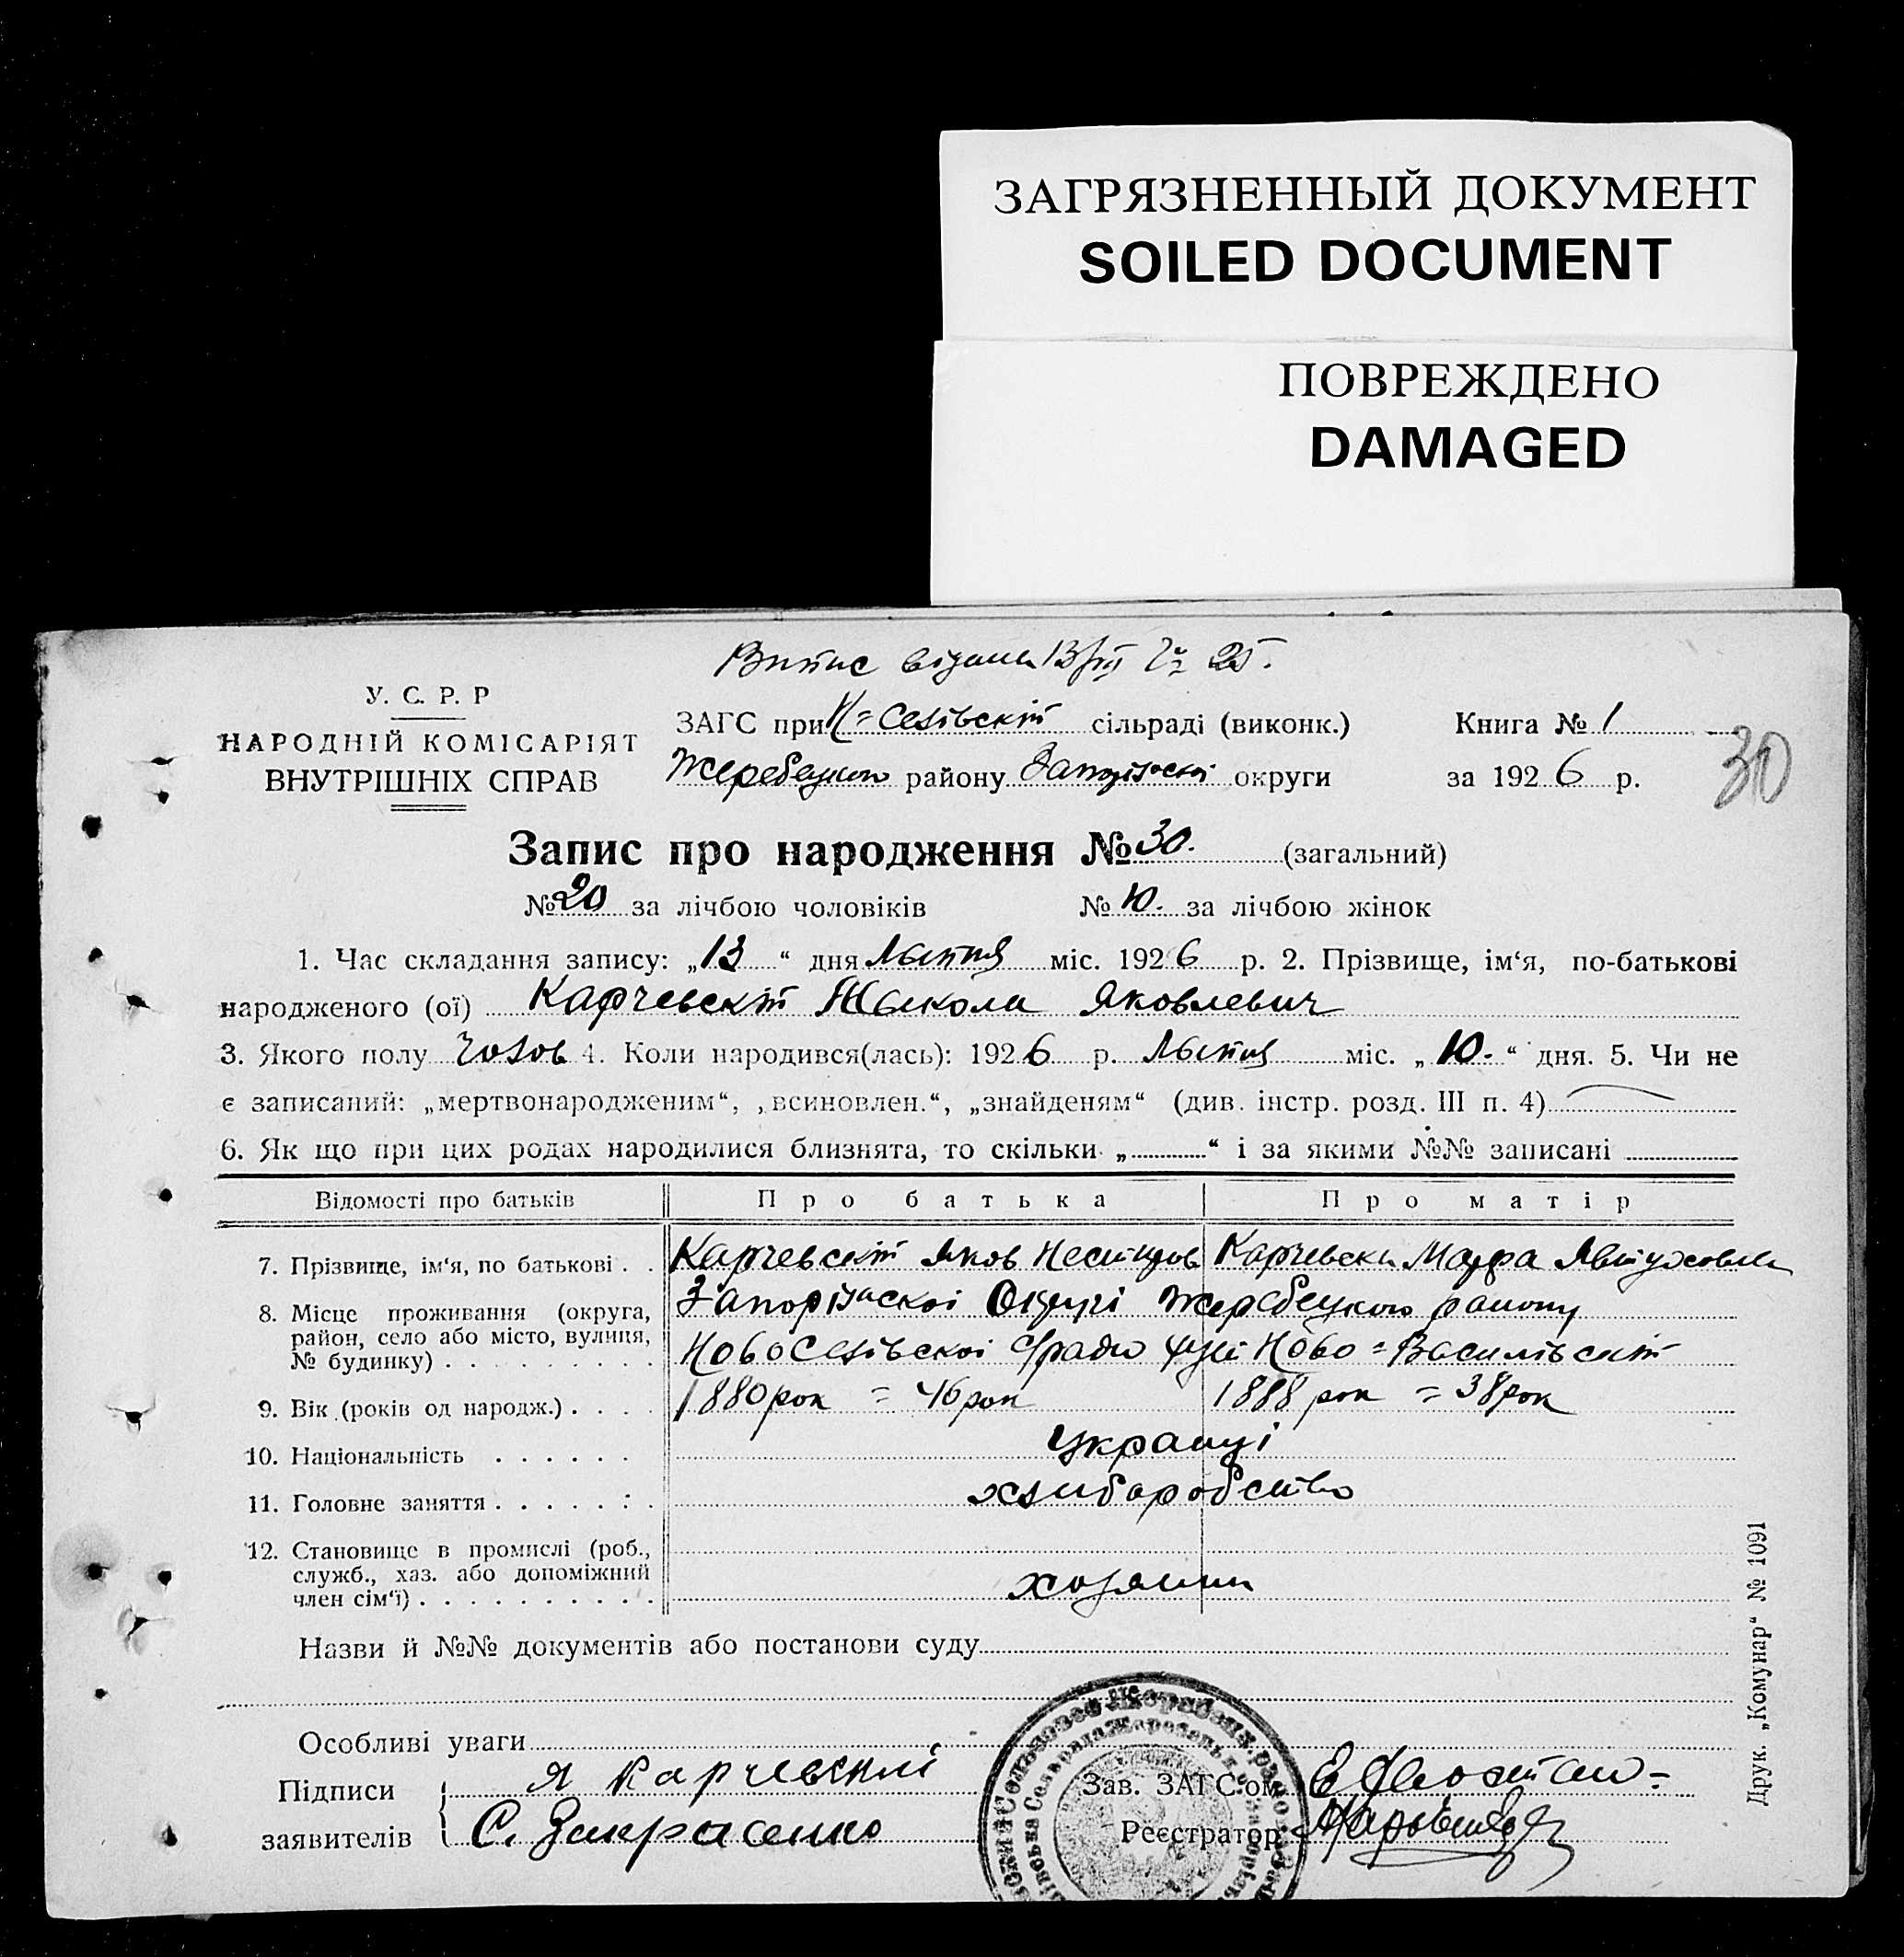 ЗАГРЯЗНЕННЫЙ ДОКУМЕНТ
SOILED DOCUMENT
ПОВРЕЖДЕНО
DAMAGED
У. С. Р. Р
НАРОДНІЙ КОМІСАРІЯТ
ВНУТРІШНІХ СПРАВ
ЗАГС при сільраді (виконк.)
району округи
Книга № 1
за 1926 р.
30
Запис про народження № 30. (загальний)
№ 20 за лічбою чоловіків № 10. за лічбою жінок
1. Час складання запису: „13“ дня Липня міс. 1926 р. 2. Прізвище, ім‘я, по-батькові
народженого (ої) Карчевскій Микола Яковлевич
3. Якого полу чолов 4. Коли народився(лась): 1926 р. Липня міс. „10.“ дня. 5. Чи не
є записаний: „мертвонародженим“, „всиновлен.“, „знайденям“ (див. інстр. розд. III п. 4)
6. Як що при цих родах народилися близнята, то скільки „ “ і за якими №№ записані
Відомості про батьків Про батька Про матір
7. Прізвище, ім‘я, по батькові . . Карчевскій Яков Карчевска Марфа
8. Місце проживання (округа,
район, село або місто, вулиця,
№ будинку) . . . . . . . . .
Запорізскоі Округі Жеребецкого району
Ново=Васілівскій
9. Вік (років од народж.) . . . . 1880 рок = 46 рок 1888 рок = 38 рок
10. Національність . . . . . . Украінці
11. Головне заняття . . . . . . . хлиборобство
12. Становище в промислі (роб.,
служб., хаз. або допоміжний
член сім‘ї) . . . . . . . . . .
хозяин
Назви й №№ документів або постанови суду
Особливі уваги
Підписи
заявителів
Я Карчевский
Зав. ЗАГС‘ом
Реєстратор
Друк. „Комунар“ № 1091